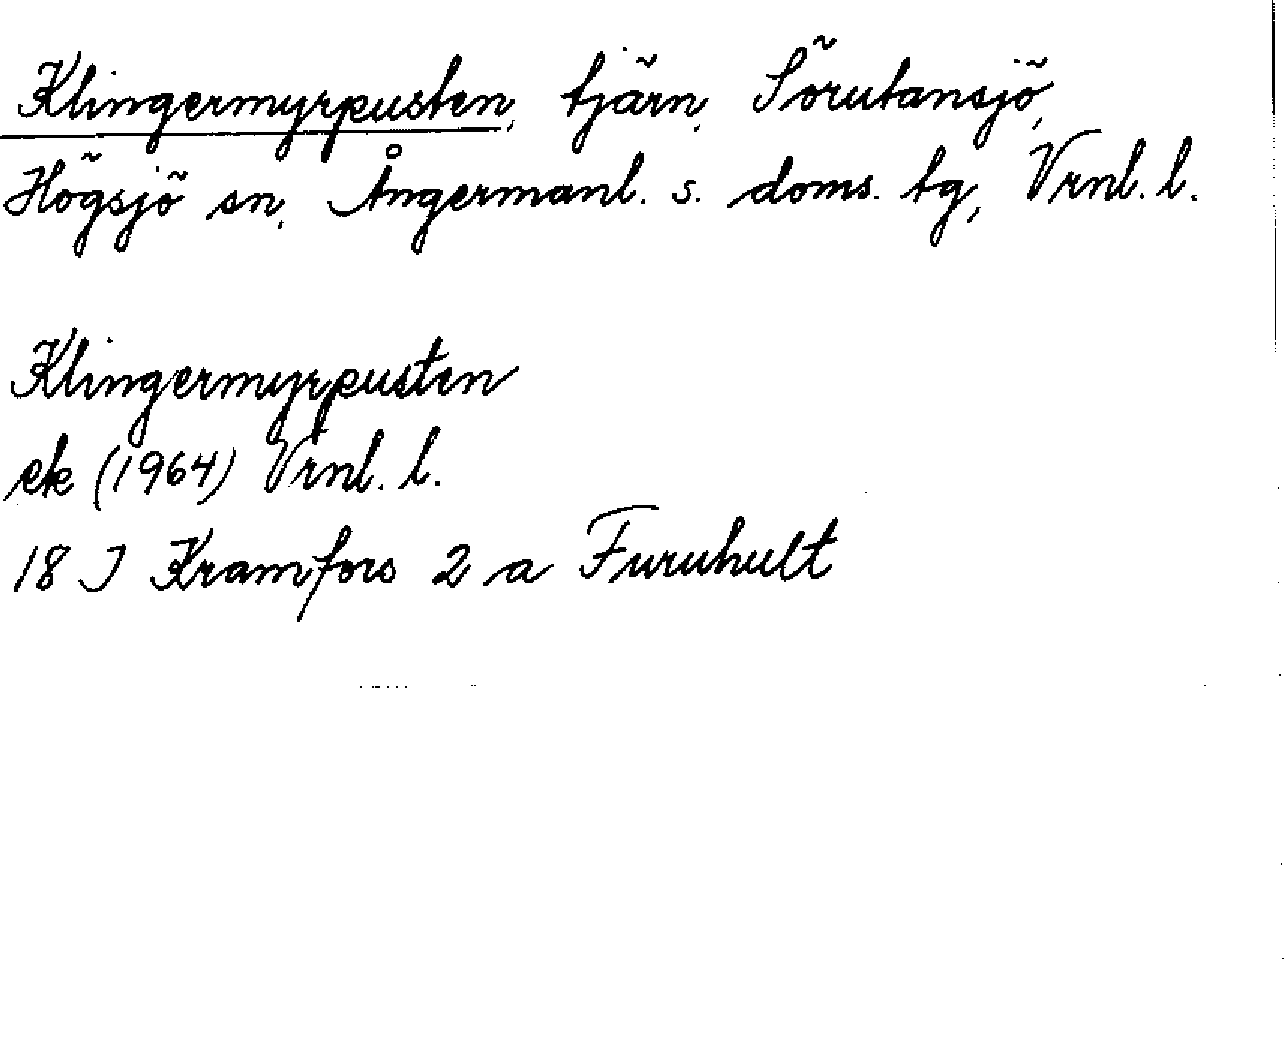 Klingermyrpusten, tjärn, Sörutansjö,
Högsjö sn, Ångermanl. s. doms. tg, Vrnl. l.
Klingermyrpusten
ek (1964) Vrnl. l.
18 I Kramfors 2 a Furuhult